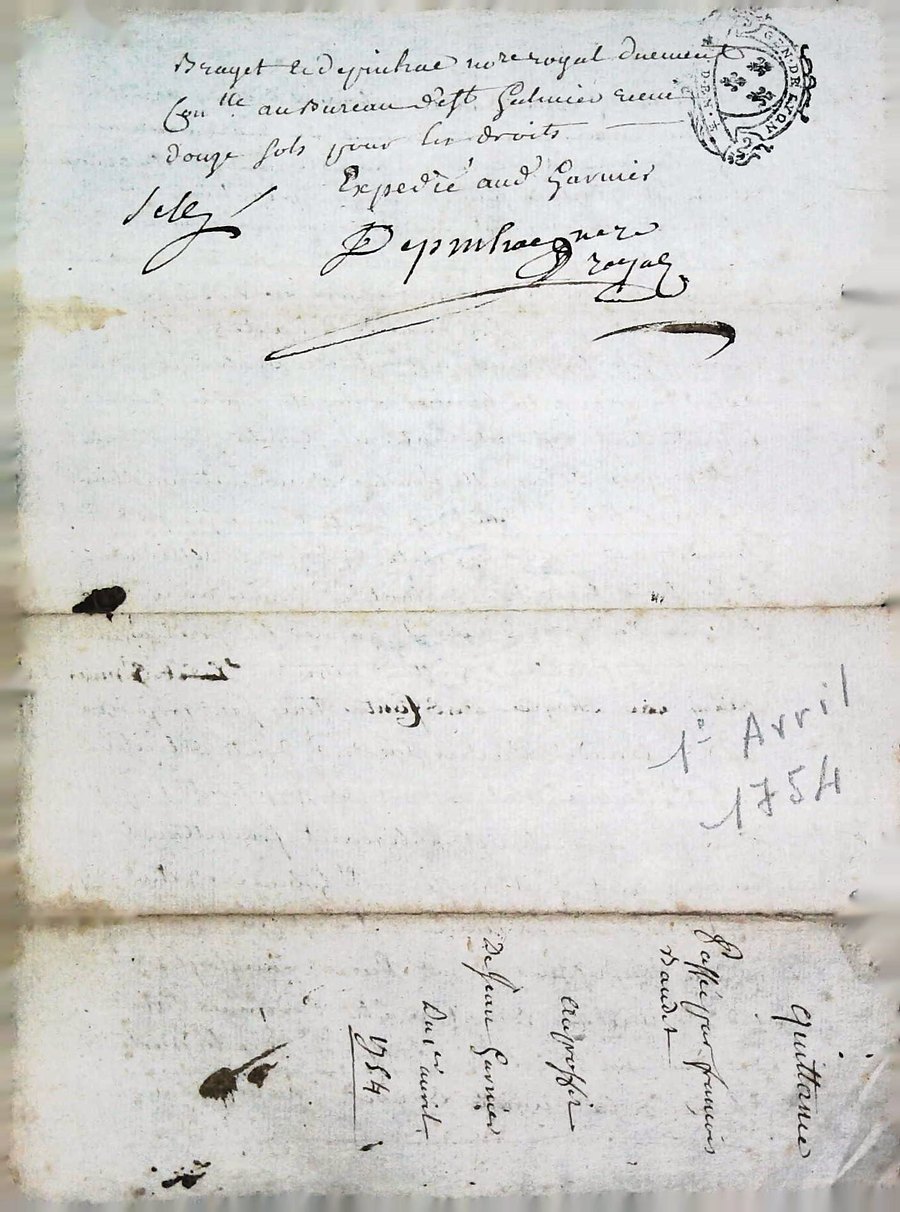 Brayet et depinhac no.re royal duement
Con.lle au Bureau de St. Galmier receu
douze sols pour les droits
Expedié aud. Garnier
Scellé
Depinhac no.re
royal
GEN · DE LYON
1.er Avril
1754
Quittance
Passée par françois
Baudet
Au proffit
De Jean Garnier
Du 1.er avril
1754